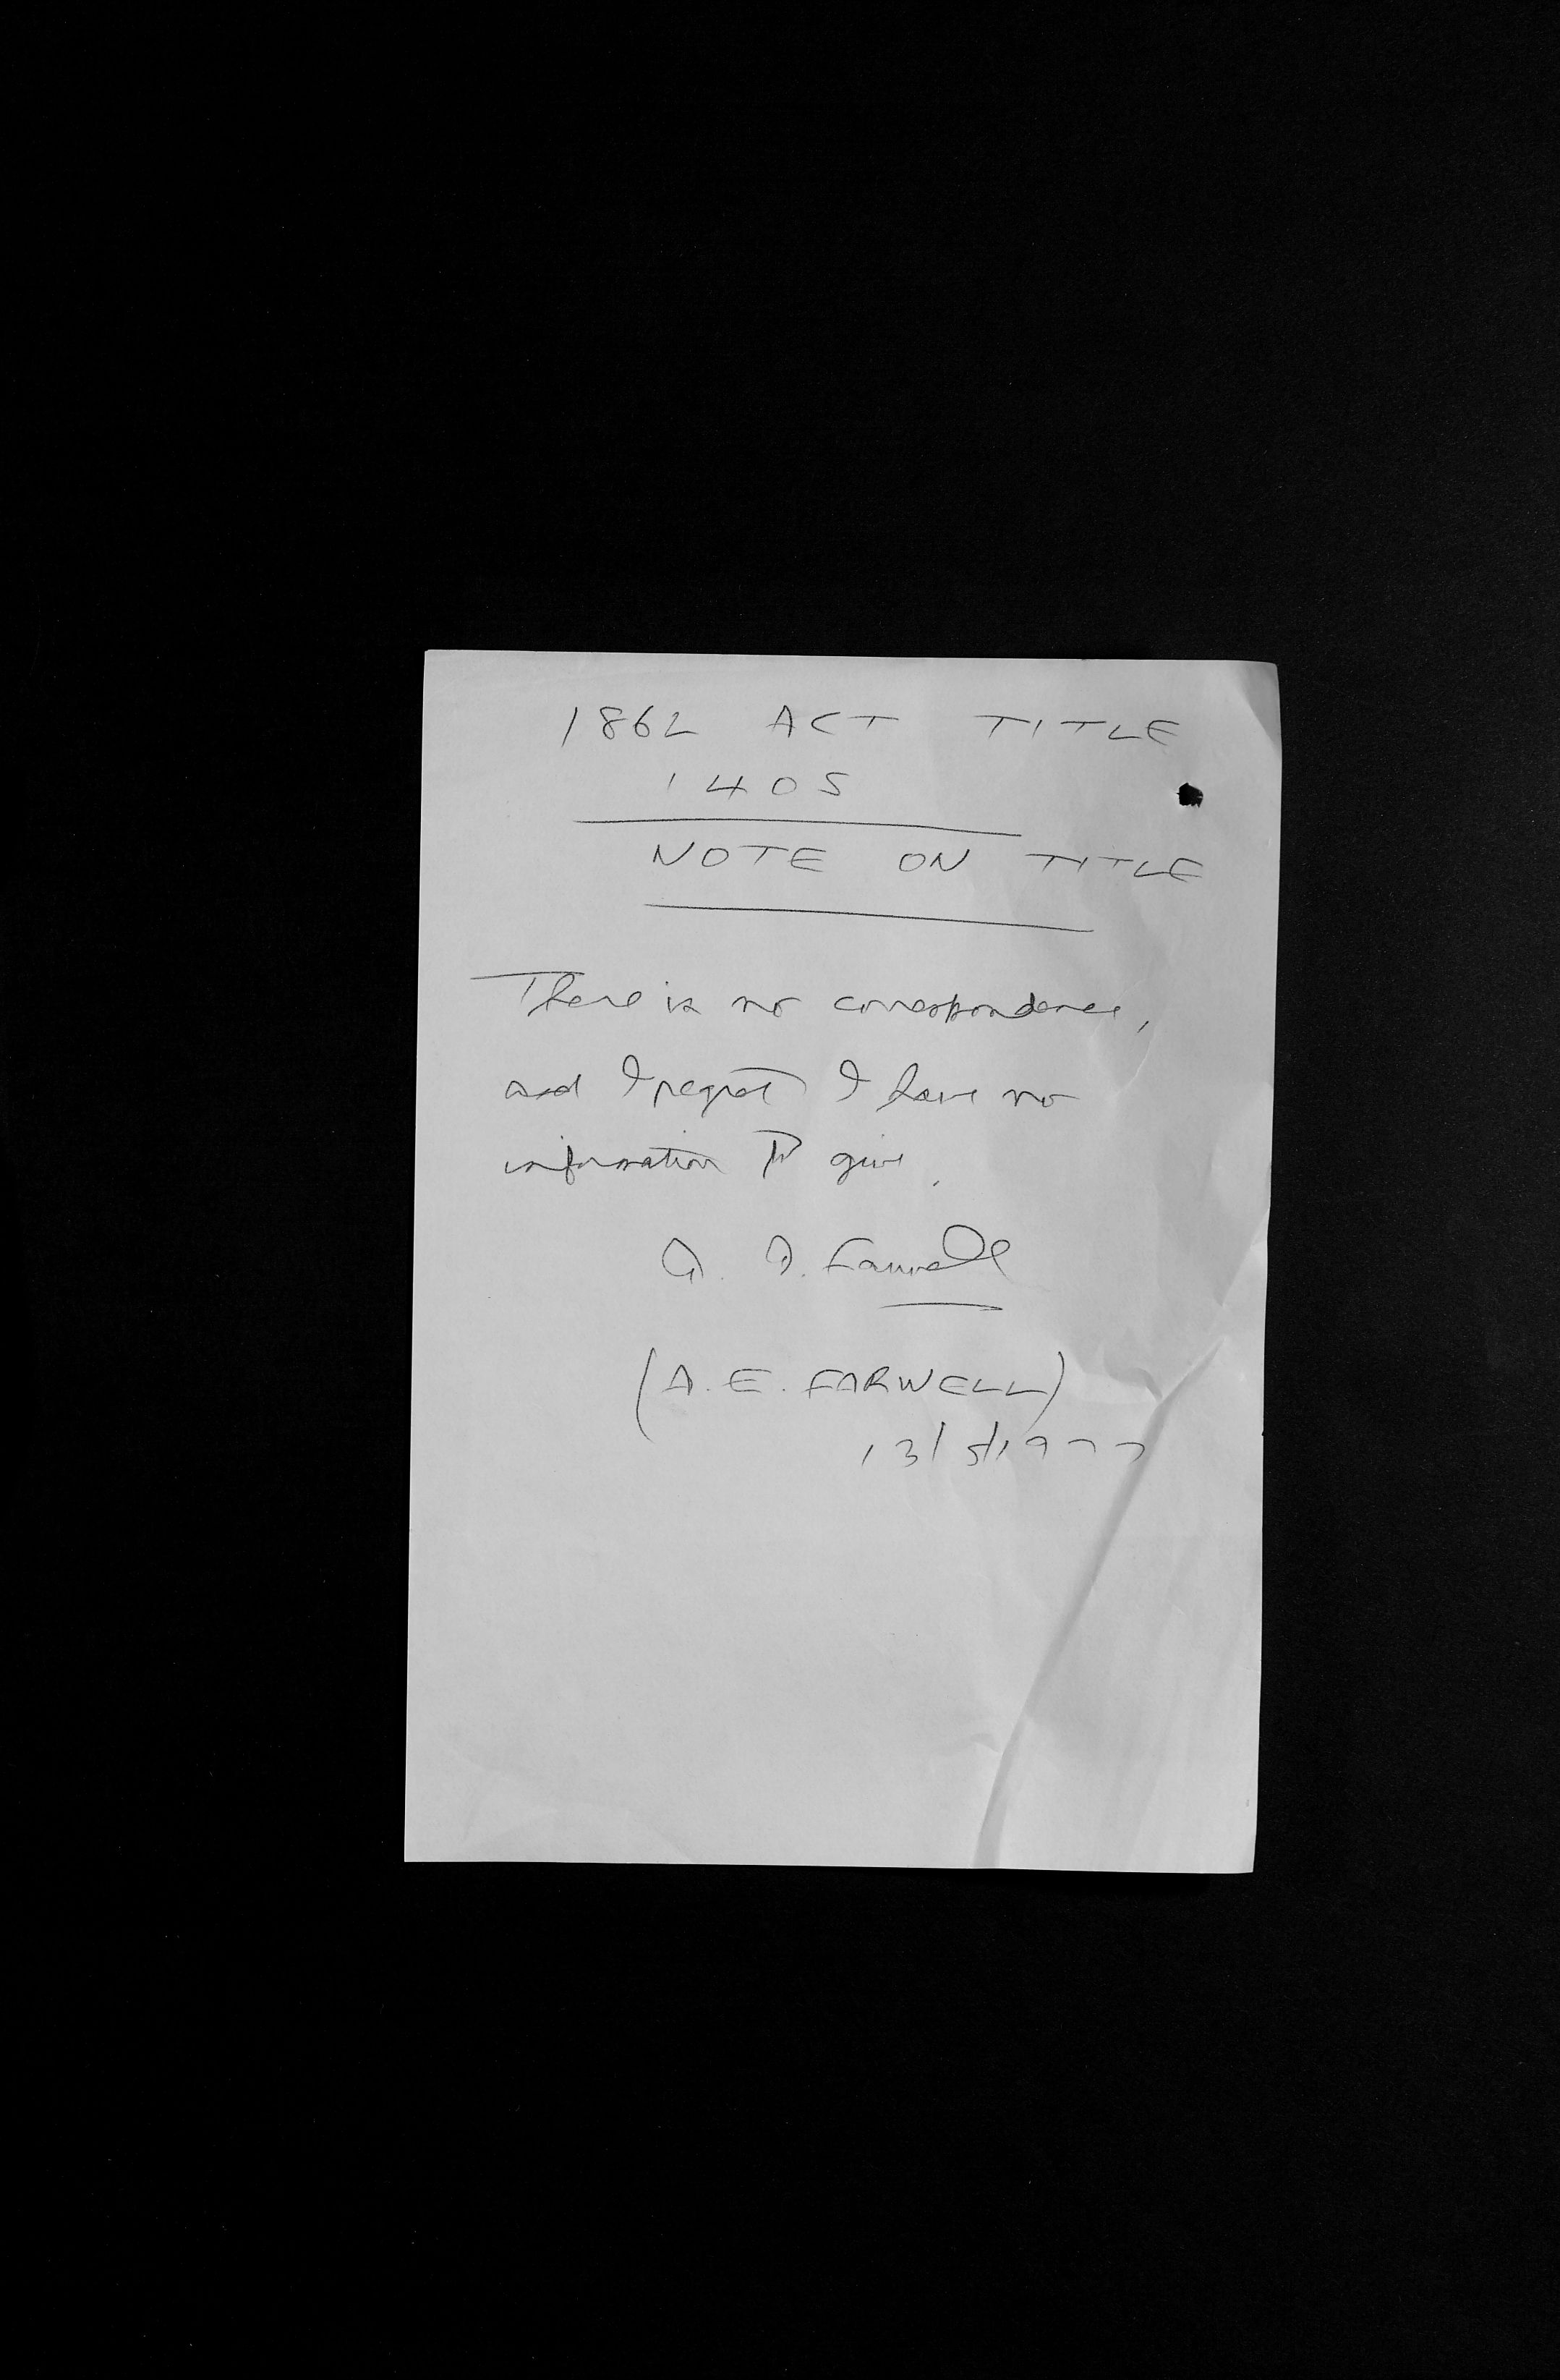 1862 ACT TITLE
1405
NOTE ON TITLE
There is no correspondence,
and I regret I have no
information to give.
A. E. Farwell
(A. E. FARWELL)
13/5/1977